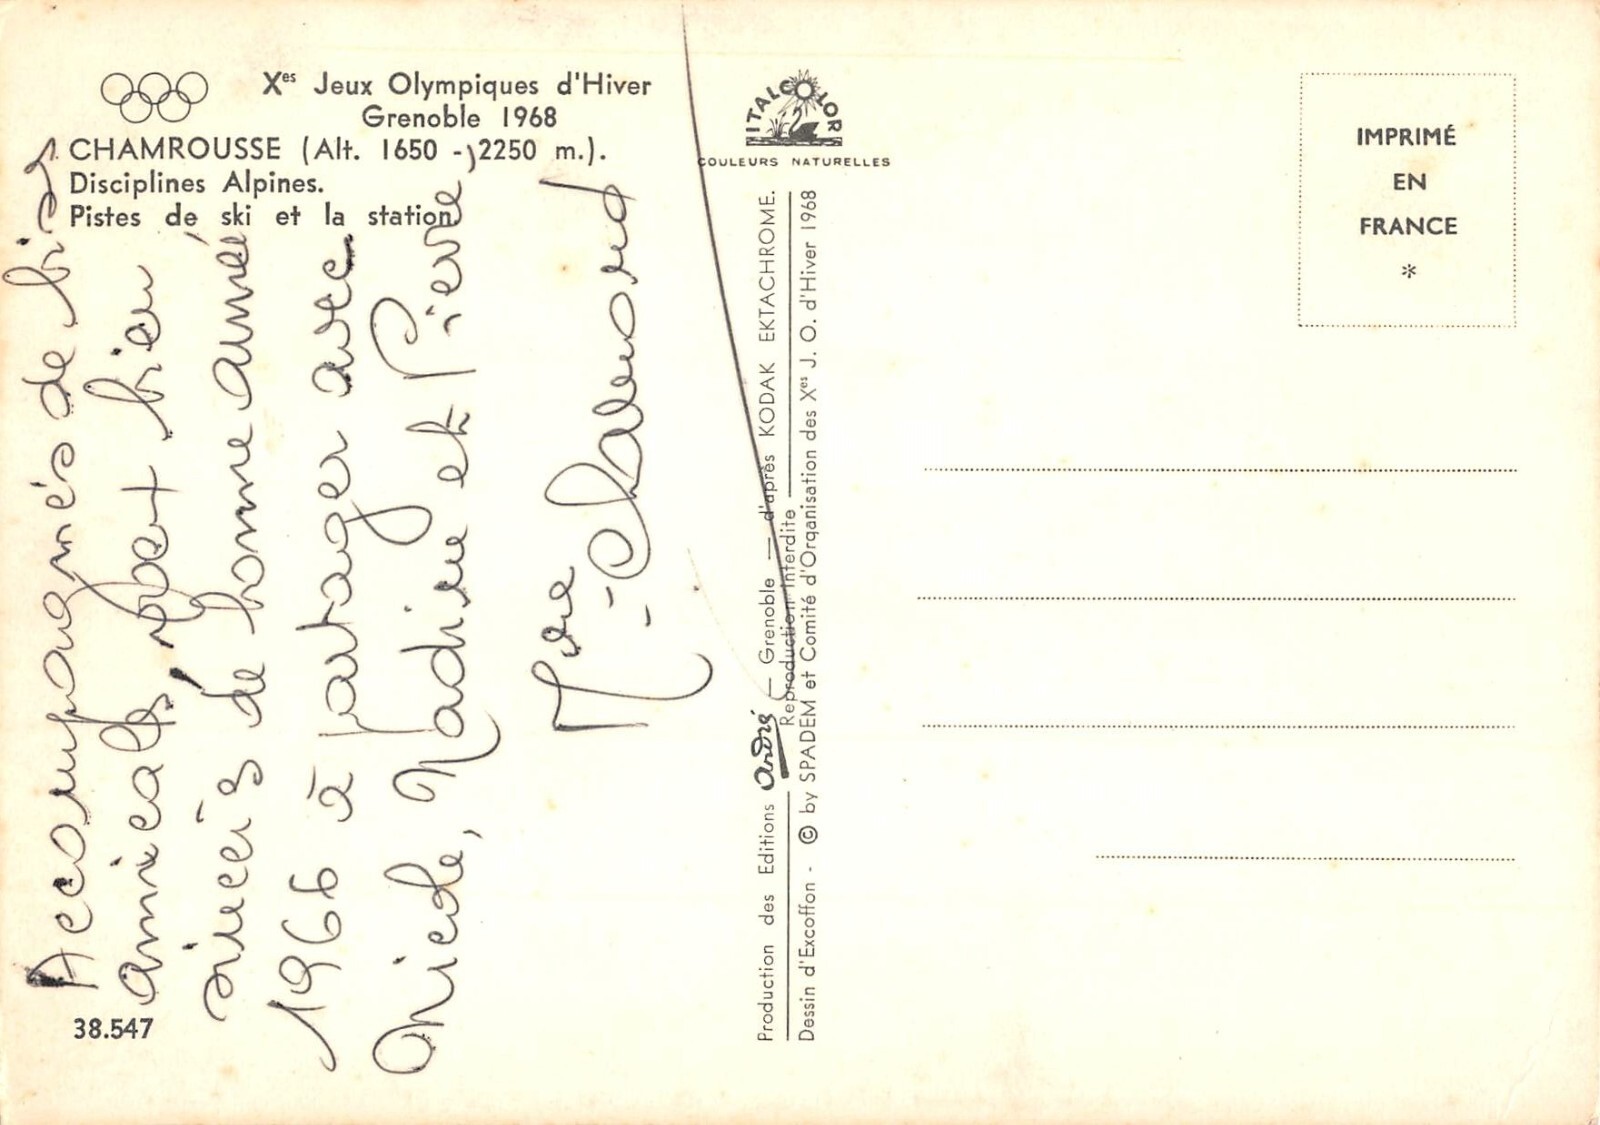 Xes Jeux Olympiques d'Hiver
Grenoble 1968
CHAMROUSSE (Alt. 1650 - 2250 m.).
Disciplines Alpines.
Pistes de ski et la station
Accompagnés de
amicals, bien
de bonne année
1966 à partager avec
Nicole, Nadine et Pierre,
Mme Chamord
38.547
ITALCOLOR
COULEURS NATURELLES
Production des Editions André — Grenoble — d'après KODAK EKTACHROME.
Reproduction Interdite
Dessin d'Excoffon - © by SPADEM et Comité d'Organisation des Xes J. O. d'Hiver 1968
IMPRIMÉ
EN
FRANCE
*